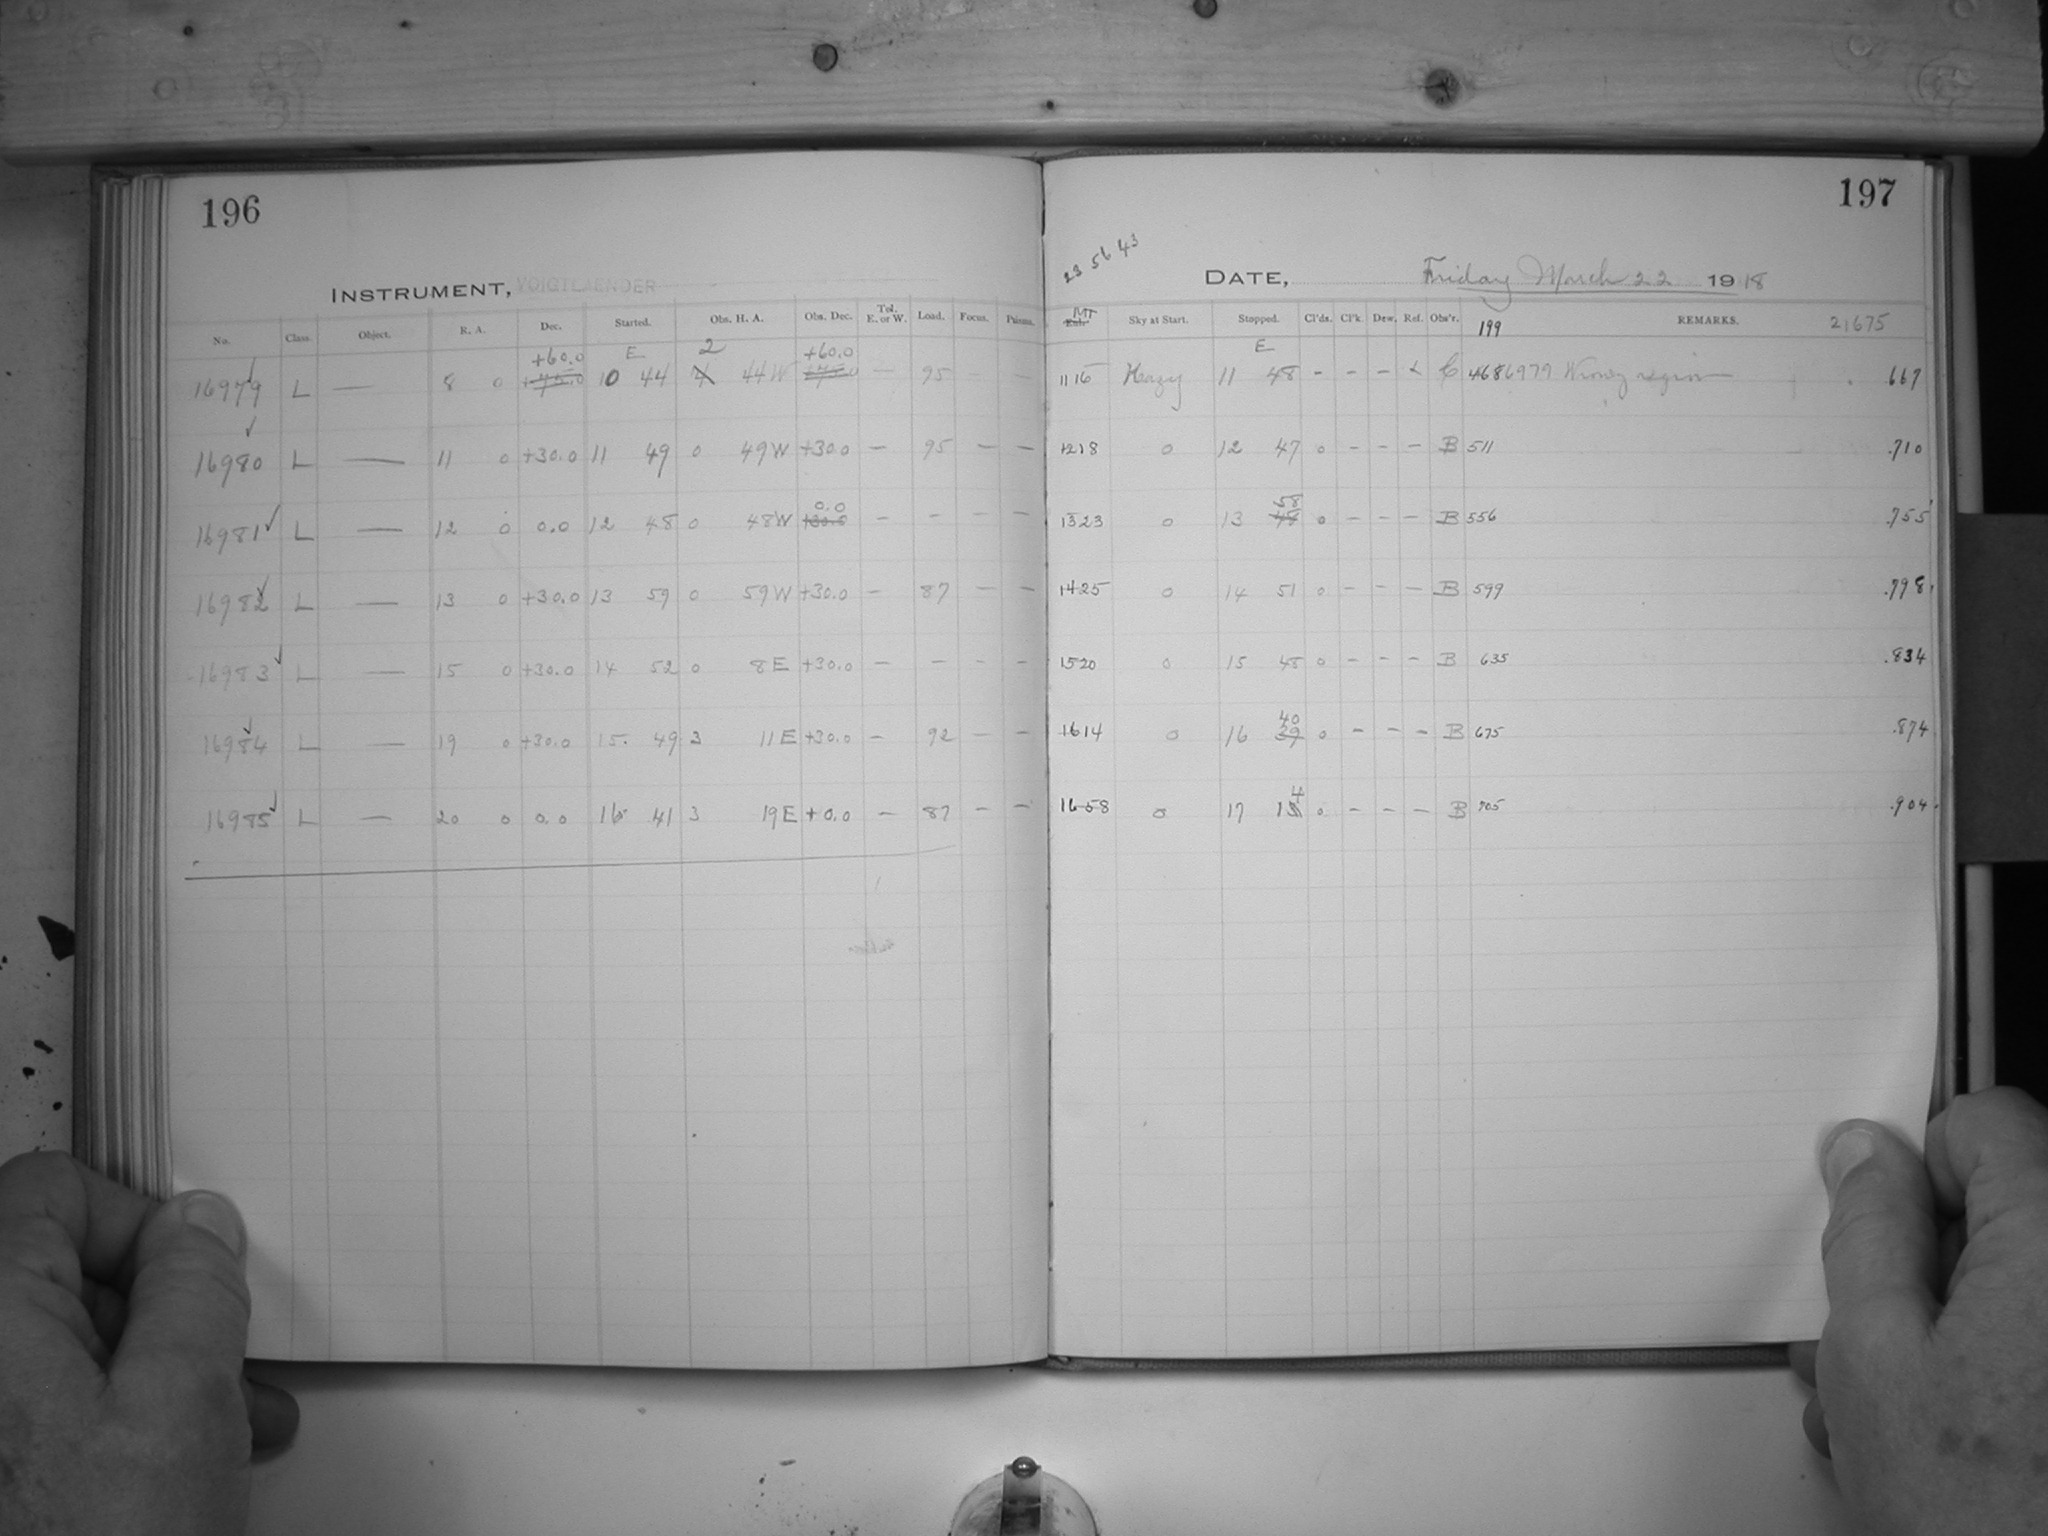 196
INSTRUMENT, VOIGTLAENDER
No. Class. Object. R. A. Dec. Started. Obs. H. A. Obs. Dec. Tel. E. or W. Load. Focus. Prisms.
+60.0 E 2 +60.0
16979 L — 8 0 +45.0 10 44 4 44 W +45.0 — 95 — —
16980 L — 11 0 +30.0 11 49 0 49 W +30.0 — 95 — —
0.0
16981 L — 12 0 0.0 12 48 0 48 W +30.0 — — — —
16982 L — 13 0 +30.0 13 59 0 59 W +30.0 — 87 — —
16983 L — 15 0 +30.0 14 52 0 8 E +30.0 — — — —
16984 L — 19 0 +30.0 15 49 3 11 E +30.0 — 92 — —
16985 L — 20 0 0.0 16 41 3 19 E +0.0 — 87 — —
197
23 56 43
DATE, Friday March 22 1918
MT
Exp. Sky at Start. Stopped. Cl'ds. Cl'k. Dew. Ref. Obs'r. 199 REMARKS. 21675
E
11 16 Hazy 11 48 - - - C 468 6979 Wrong region .667
12 18 0 12 47 0 - - - B 511 .710
58
13 23 0 13 0 - - - B 556 .755
14 25 0 14 51 0 - - - B 599 .798
15 20 0 15 48 0 - - - B 635 .834
40
16 14 0 16 39 0 - - - B 675 .874
4
16 58 0 17 0 - - - B 705 .904